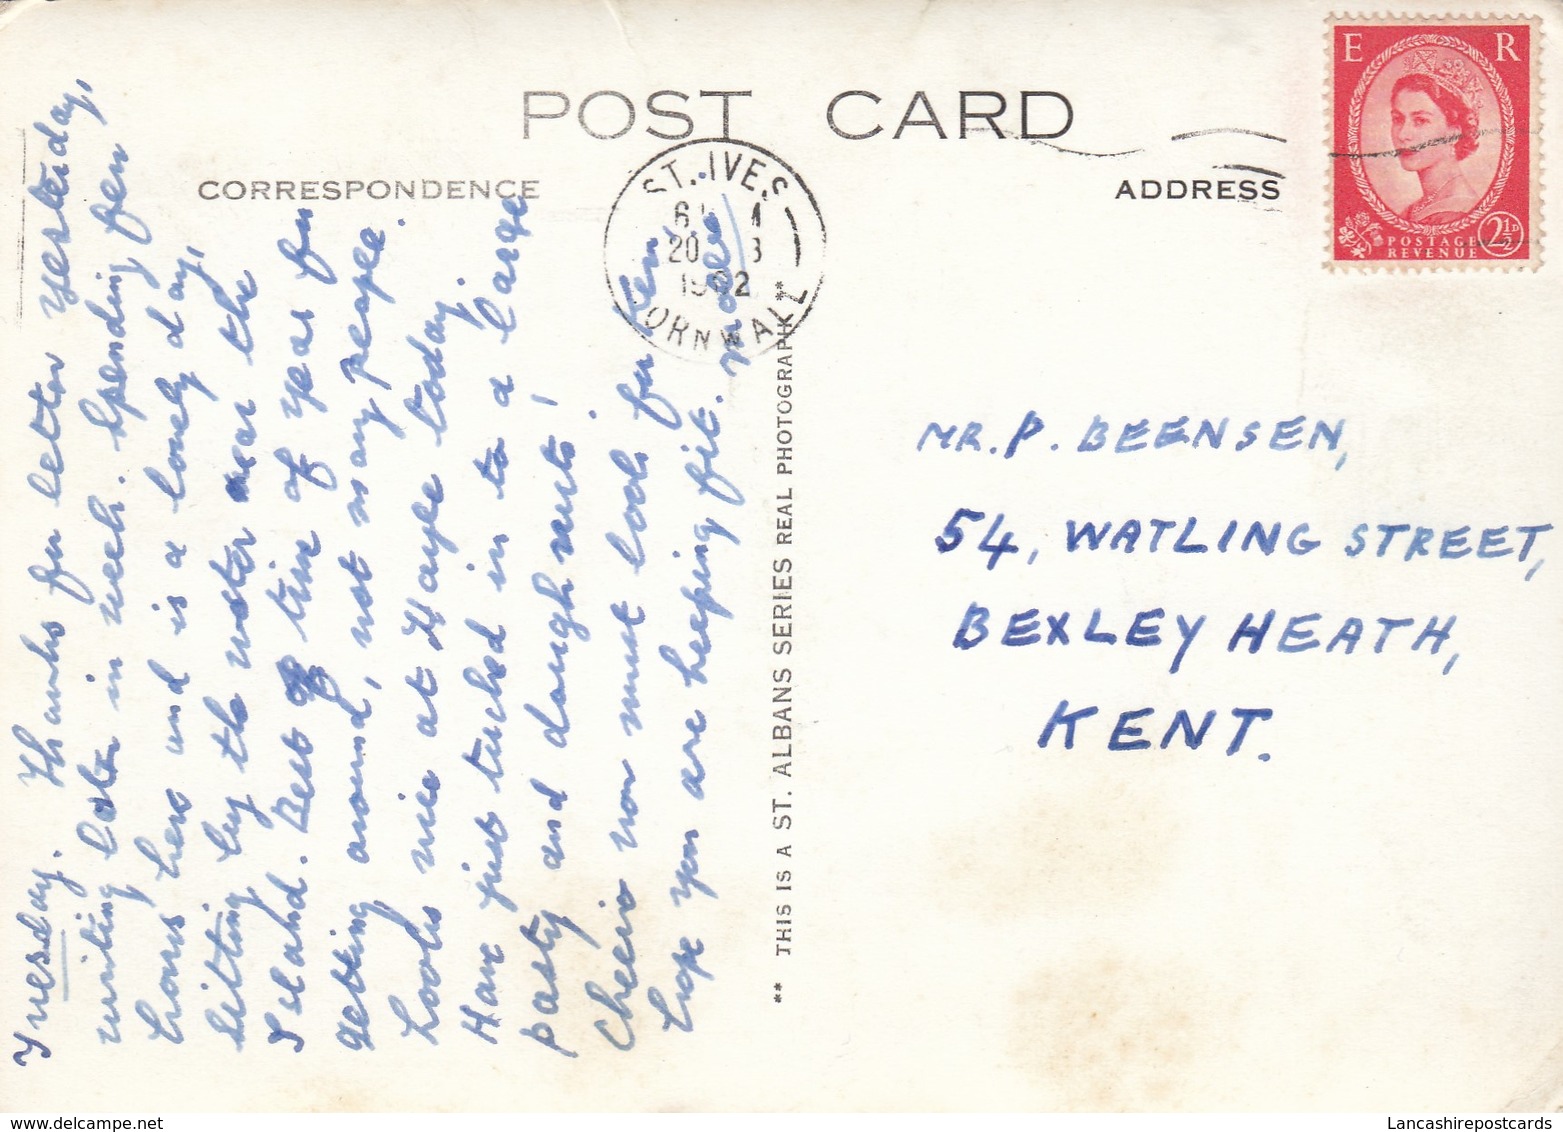 POST CARD
CORRESPONDENCE
ADDRESS
E R
POSTAGE
REVENUE
2½D
ST. IVES
20
CORNWALL
Tuesday. Thanks for letter yesterday,
writing later in week. Spending few
hours here and is a lovely day,
sitting by the water near the
Island. Best time of year for
getting around, not many people.
Looks nice at Hayle today.
Have just tucked in to a large
pasty and doughnuts!
Cheerio now must look for Ken,
hope you are keeping fit.
** THIS IS A ST. ALBANS SERIES REAL PHOTOGRAPH **
MR. P. BEENSEN,
54, WATLING STREET,
BEXLEY HEATH,
KENT.
Lancashirepostcards